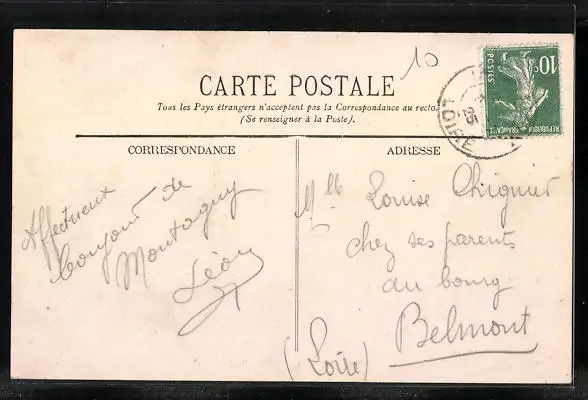 10
CARTE POSTALE
Tous les Pays étrangers n'acceptent pas la Correspondance au recto.
(Se renseigner à la Poste).
CORRESPONDANCE
ADRESSE
10c POSTES
REPUBLIQUE FRANÇAISE
25
LOIRE
Affectueux
bonjour de
Montagny
Léon
Mlle Louise Chignier
chez ses parents
au bourg
Belmont
(Loire)